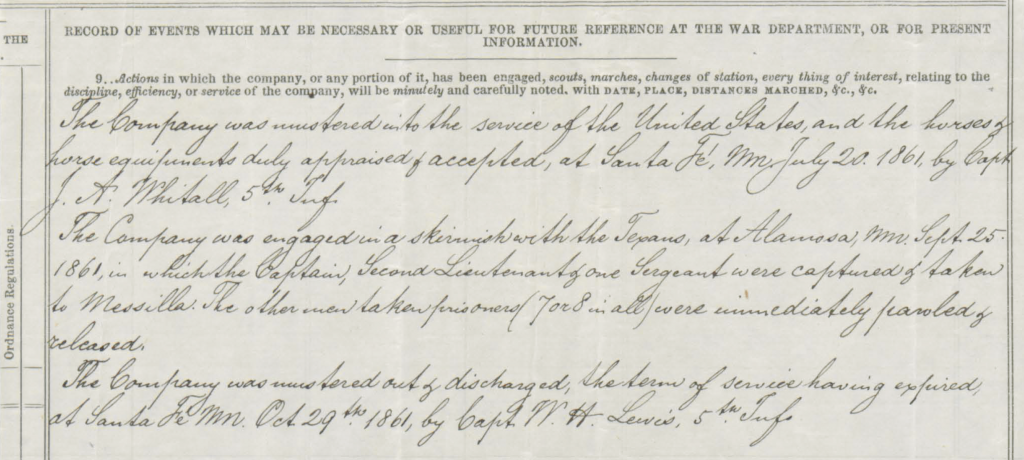 THE
RECORD OF EVENTS WHICH MAY BE NECESSARY OR USEFUL FOR FUTURE REFERENCE AT THE WAR DEPARTMENT, OR FOR PRESENT
INFORMATION.
9..Actions in which the company, or any portion of it, has been engaged, scouts, marches, changes of station, every thing of interest, relating to the
discipline, efficiency, or service of the company, will be minutely and carefully noted. with DATE, PLACE, DISTANCES MARCHED, &c., &c.
The Company was mustered into the service of the United States, and the horses &
horse equipments duly appraised & accepted, at Santa Fé, NM, July 20. 1861, by Capt
J. A. Whitall, 5th Inf.
The Company was engaged in a skirmish with the Texans, at Alamosa, NM. Sept. 25.
1861, in which the Captain, Second Lieutenant & one Sergeant were captured & taken
to Messilla. The other men taken prisoners (7 or 8 in all) were immediately paroled &
released.
The Company was mustered out & discharged, the term of service having expired,
at Santa Fé NM. Oct. 29th 1861, by Capt. W. H. Lewis, 5th Inf.
Ordnance Regulations.